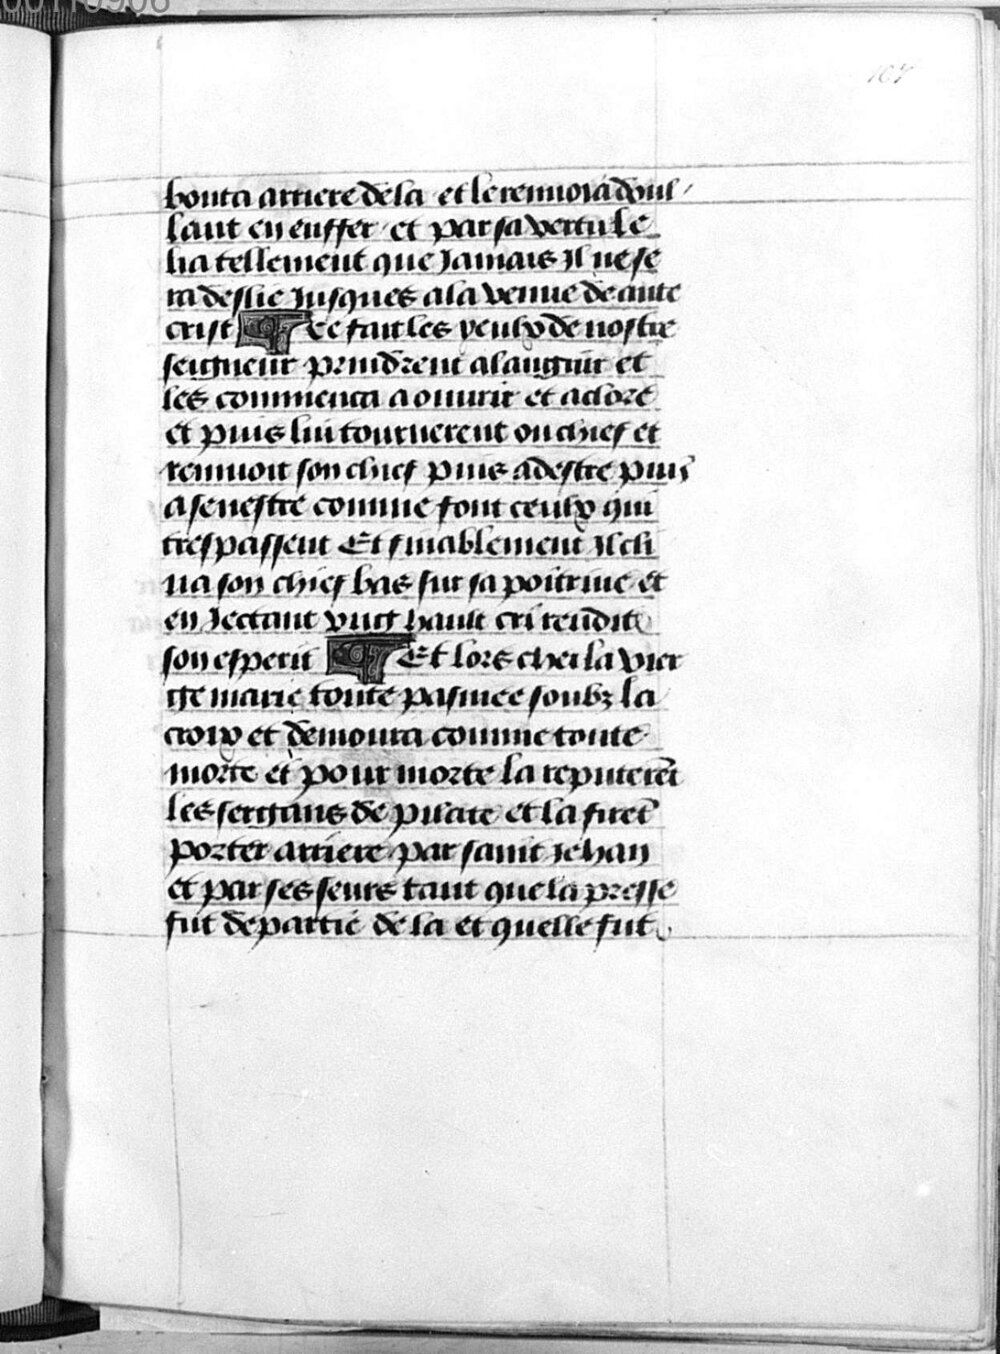 00110908
107
bouta arriere de la et le renuoia doul
lant en enffer et par sa vertu le
lia tellement que Jamais Il ne se
ra deslie Jusques a la venue de ante
crist ¶ Ce fait les yeulx de nostre
seigneur prindrent a languir et
les commenca a ouurir et a clore
et puis lui tournerent ou chief et
remuoit son chief puis a destre puis
a senestre comme font ceulx qui
trespassent Et finablement Il cli
na son chief bas sur sa poitrine et
en Jectant vng hault cri rendit
son esperit ¶ Et lors chei la vier
ge marie toute pasmee soubz la
croix et demoura comme toute
morte et pour morte la reputerēt
les sergans de pilate et la firēt
porter arriere par saint Jehan
et par ses seurs tant que la presse
fut departie de la et quelle fut